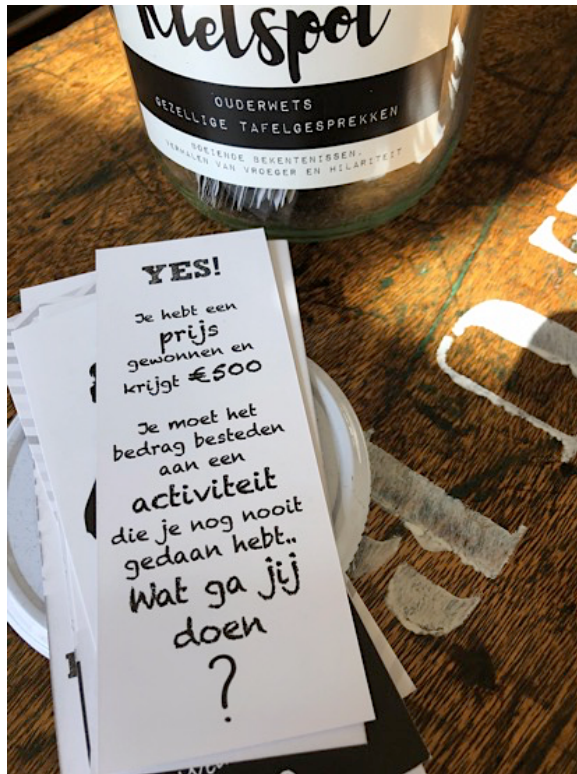 Kletspot
OUDERWETS
GEZELLIGE TAFELGESPREKKEN
BOEIENDE BEKENTENISSEN,
VERHALEN VAN VROEGER EN HILARITEIT
YES!
Je hebt een
prijs
gewonnen en
krijgt €500
Je moet het
bedrag besteden
aan een
activiteit
die je nog nooit
gedaan hebt..
Wat ga jij
doen
?